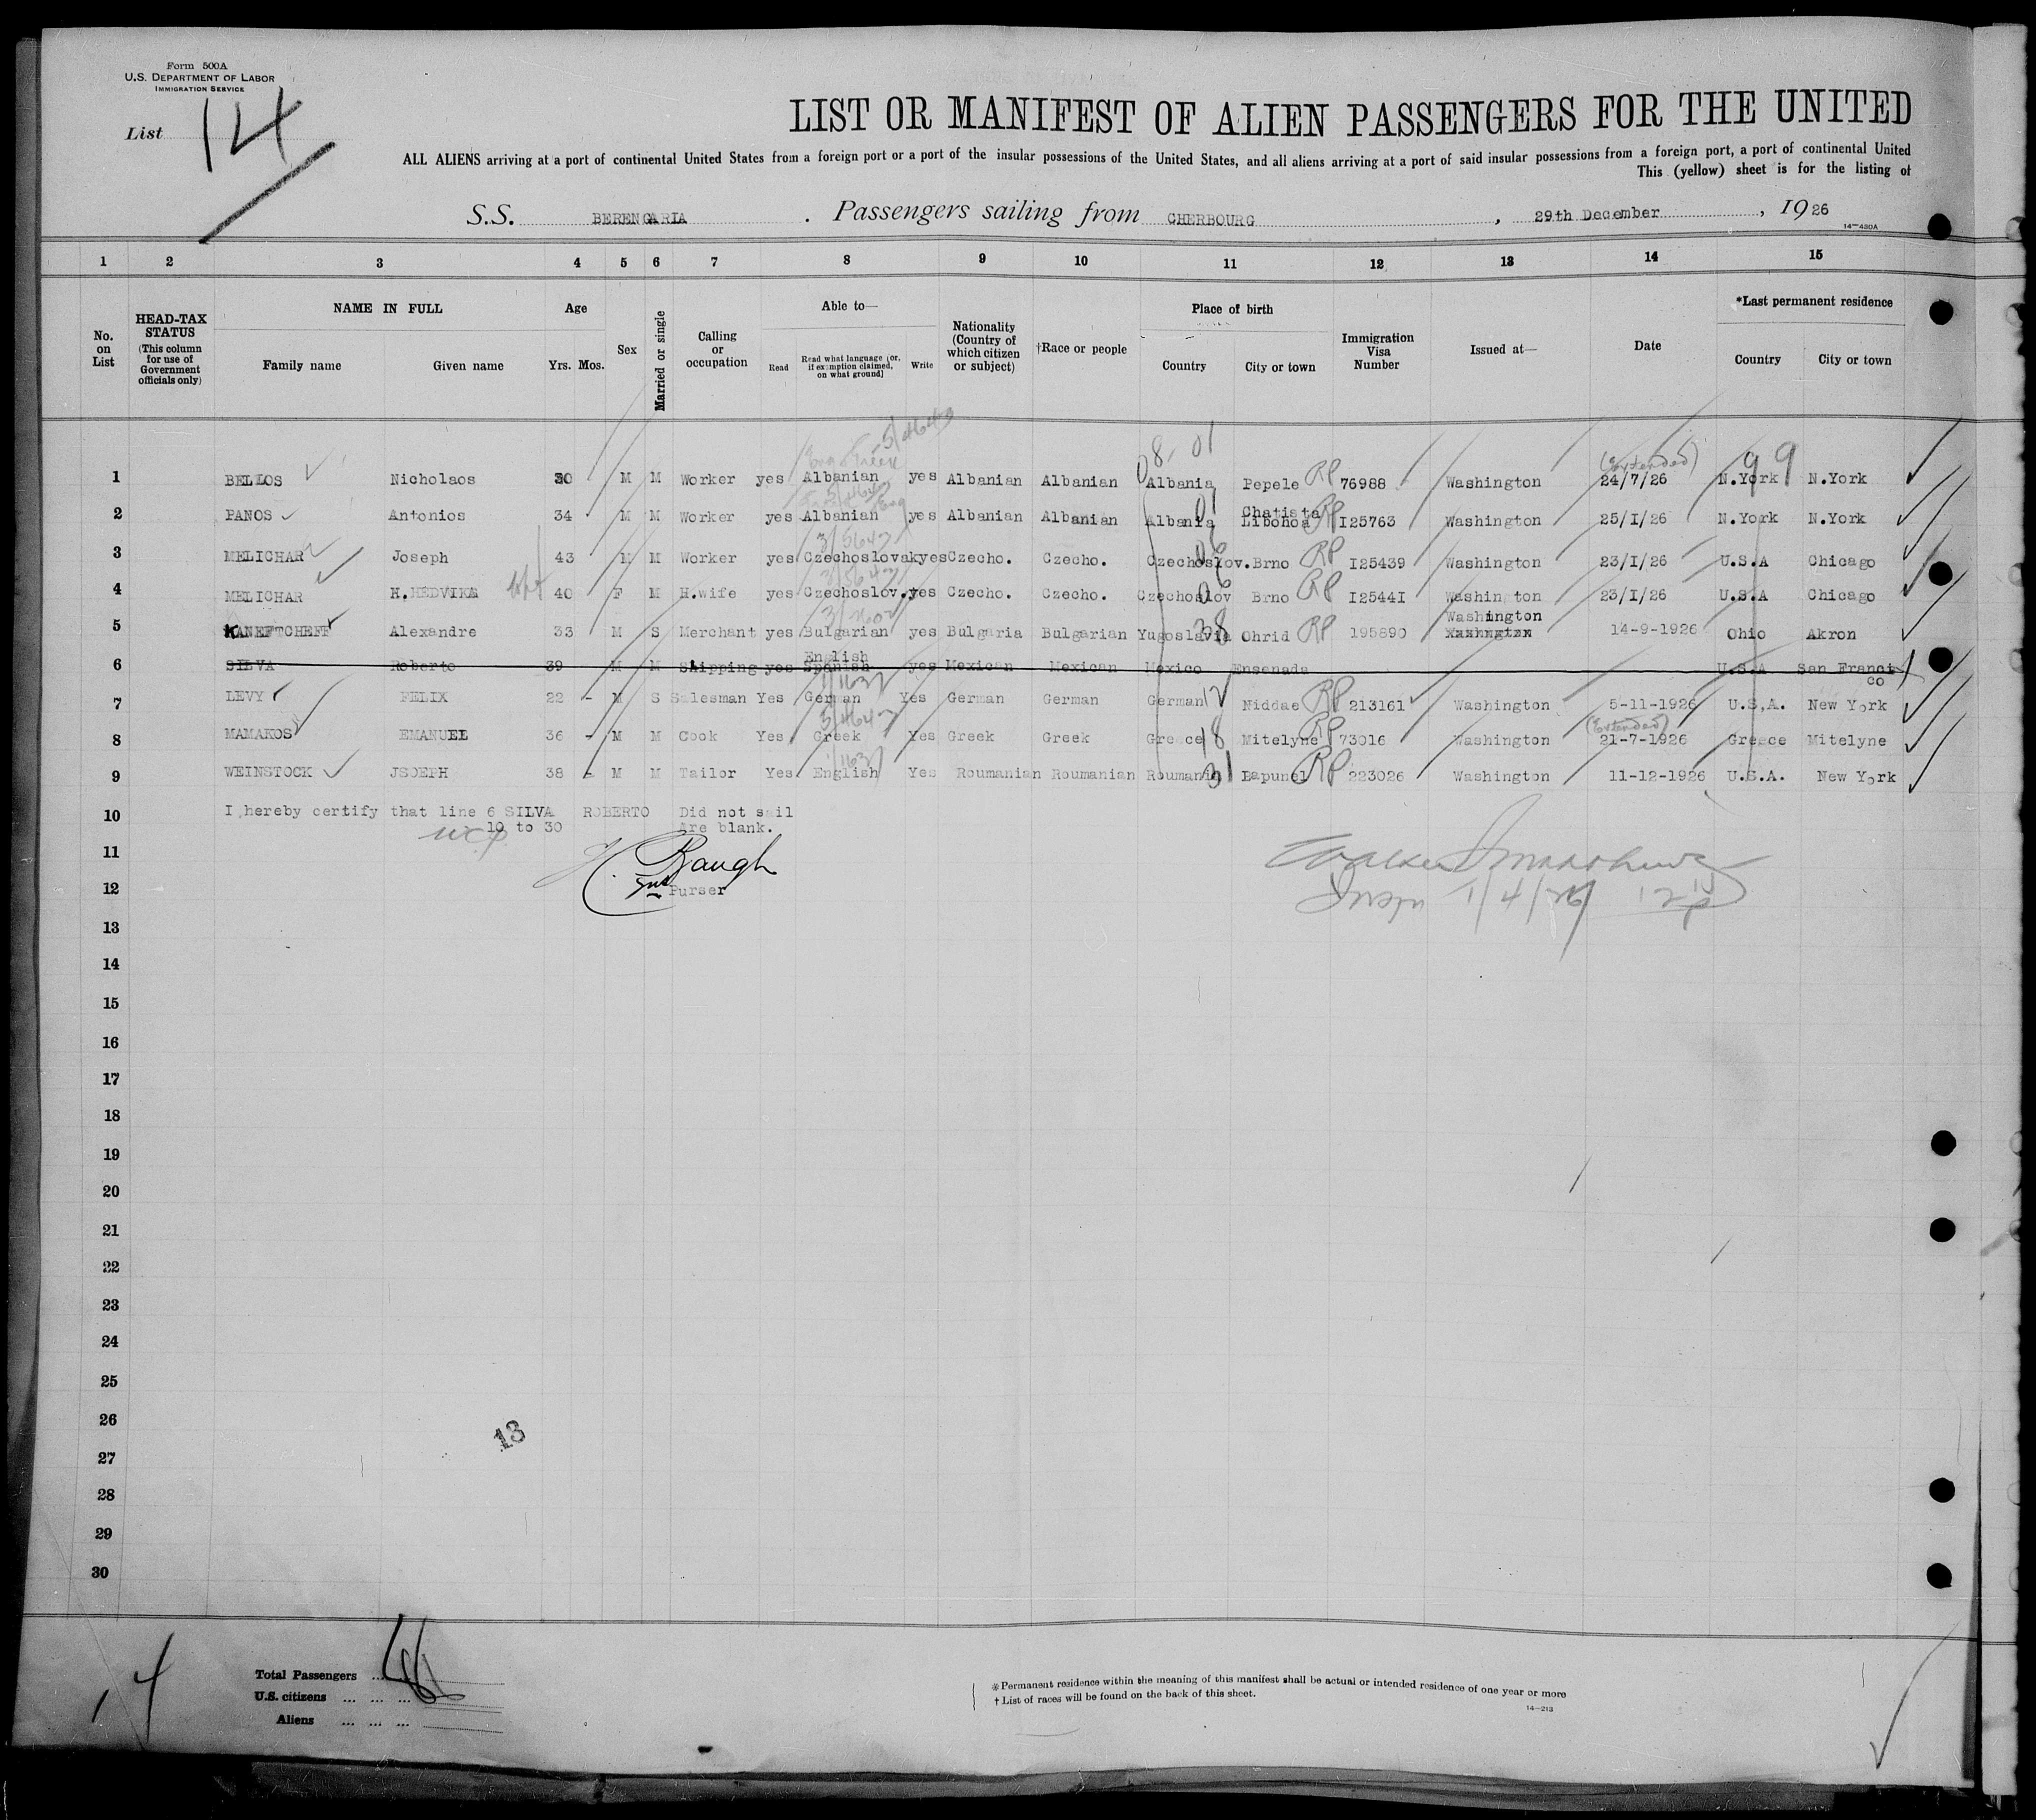 Form 500A
U.S. DEPARTMENT OF LABOR
IMMIGRATION SERVICE
List 14
LIST OR MANIFEST OF ALIEN PASSENGERS FOR THE UNITED
ALL ALIENS arriving at a port of continental United States from a foreign port or a port of the insular possessions of the United States, and all aliens arriving at a port of said insular possessions from a foreign port, a port of continental United
This (yellow) sheet is for the listing of
S.S. BERENGARIA . Passengers sailing from CHERBOURG , 29th December , 1926
14—430A
1 2 3 4 5 6 7 8 9 10 11 12 13 14 15
No. on List
HEAD-TAX STATUS (This column for use of Government officials only)
NAME IN FULL
Family name Given name
Age
Yrs. Mos.
Sex
Married or single
Calling or occupation
Able to—
Read
Read what language [or, if exemption claimed, on what ground]
Write
Nationality (Country of which citizen or subject)
†Race or people
Place of birth
Country City or town
Immigration Visa Number
Issued at—
Date
*Last permanent residence
Country City or town
08- 01 (Extended) 99
1 BELLOS Nicholaos 30 M M Worker yes Albanian yes Albanian Albanian Albania Pepele RP 76988 Washington 24/7/26 N.York N.York
2 PANOS Antonios 34 M M Worker yes Albanian yes Albanian Albanian Albania 01 Chatista Libohoa RP I25763 Washington 25/I/26 N.York N.York
3 MELICHAR Joseph 43 M M Worker yes Czechoslovak yes Czecho. Czecho. Czechoslov. 06 Brno RP I25439 Washington 23/I/26 U.S.A Chicago
4 MELICHAR H.HEDVIKA 40 F M H.wife yes Czechoslov. yes Czecho. Czecho. Czechoslov 06 Brno RP I2544I Washington 23/I/26 U.S.A Chicago
5 KANEFTCHEFF Alexandre 33 M S Merchant yes Bulgarian yes Bulgaria Bulgarian Yugoslavia 38 Ohrid RP 195890 Washington 14-9-1926 Ohio Akron
6 SILVA Roberto 39 M M Shipping yes English Spanish yes Mexican Mexican Mexico Ensenada U.S.A San Francisco
7 LEVY FELIX 22 - M S Salesman Yes German Yes German German German 12 Niddae RP 213161 Washington 5-11-1926 U.S.A. New York
8 MAMAKOS EMANUEL 36 - M M Cook Yes Greek Yes Greek Greek Greece 18 Mitelyne RP 73016 Washington (Extended) 21-7-1926 Greece Mitelyne
9 WEINSTOCK JSOEPH 38 - M M Tailor Yes English Yes Roumanian Roumanian Roumania 31 Lapunel RP 223026 Washington 11-12-1926 U.S.A. New York
10 I hereby certify that line 6 SILVA ROBERTO Did not sail
10 to 30 Are blank.
11
12 Baugh
Purser
Insp 1/4/26
13
14
15
16
17
18
19
20
21
22
23
24
25
26
13
27
28
29
30
14
Total Passengers ...
U.S. citizens ... ... ...
Aliens ... ... ...
* Permanent residence within the meaning of this manifest shall be actual or intended residence of one year or more
† List of races will be found on the back of this sheet.
14—213